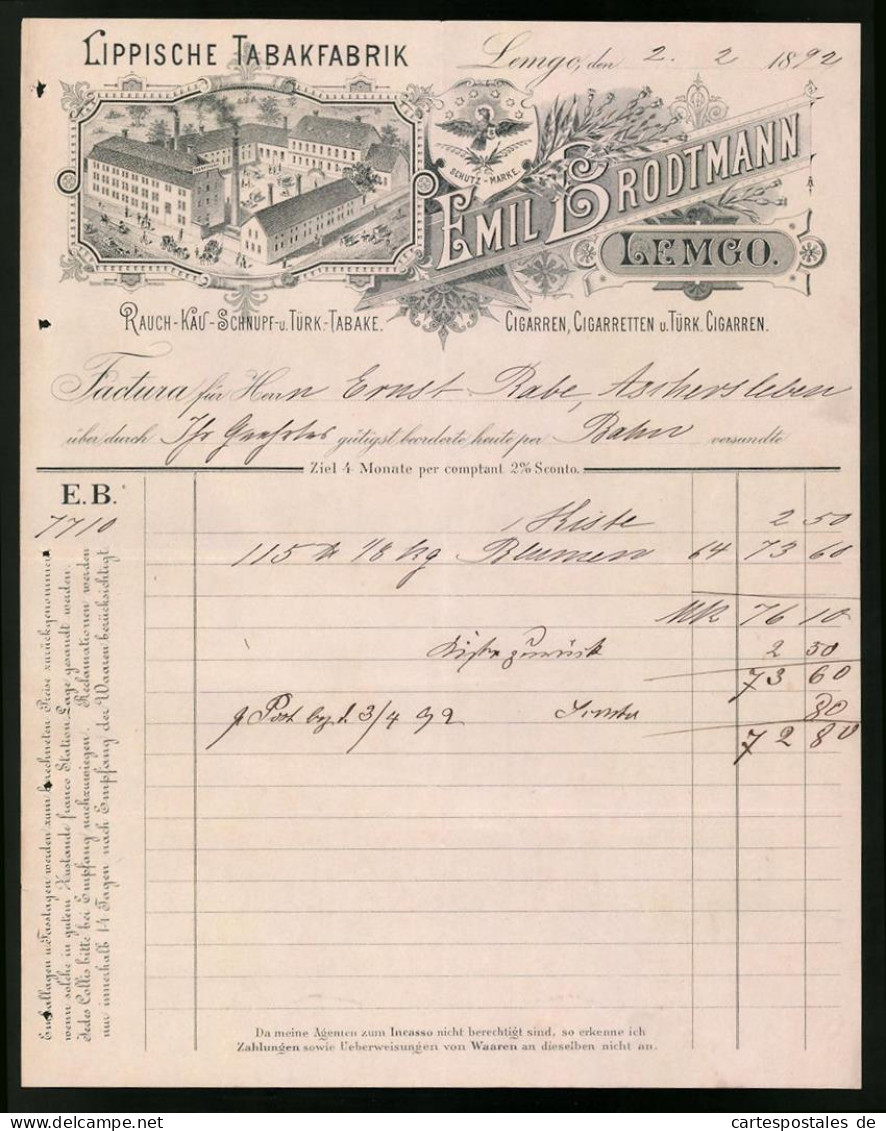 LIPPISCHE TABAKFABRIK
Lemgo, den 2. 2 1892
SCHUTZ-MARKE.
EMIL BRODTMANN
LEMGO.
RAUCH-KAU-SCHNUPF-u. TÜRK.-TABAKE.
CIGARREN, CIGARRETTEN u. TÜRK. CIGARREN.
Factura für Herrn Ernst Rabe, Aschersleben
über durch Ihr Geehrtes gütigst beorderte, heute per Bahn versandte
Ziel 4 Monate per comptant 2% Sconto.
E.B.
7710
1 Kiste 2 50
115 1/8 kg Blumen 64 73 60
Mk 76 10
Kiste zurück 2 50
73 60
p Post bez. d. 3/4 92 80
72 80
Emballagen u. Fasstagen werden zum berechneten Preise zurückgenommen
wenn solche in gutem Zustande franco Station Lage gesandt werden.
Jedes Collis bitte bei Empfang nachzuwiegen. Reclamationen werden
nur innerhalb 14 Tagen nach Empfang der Waaren berücksichtigt.
Da meine Agenten zum Incasso nicht berechtigt sind, so erkenne ich
Zahlungen sowie Ueberweisungen von Waaren an dieselben nicht an.
cartespostales de